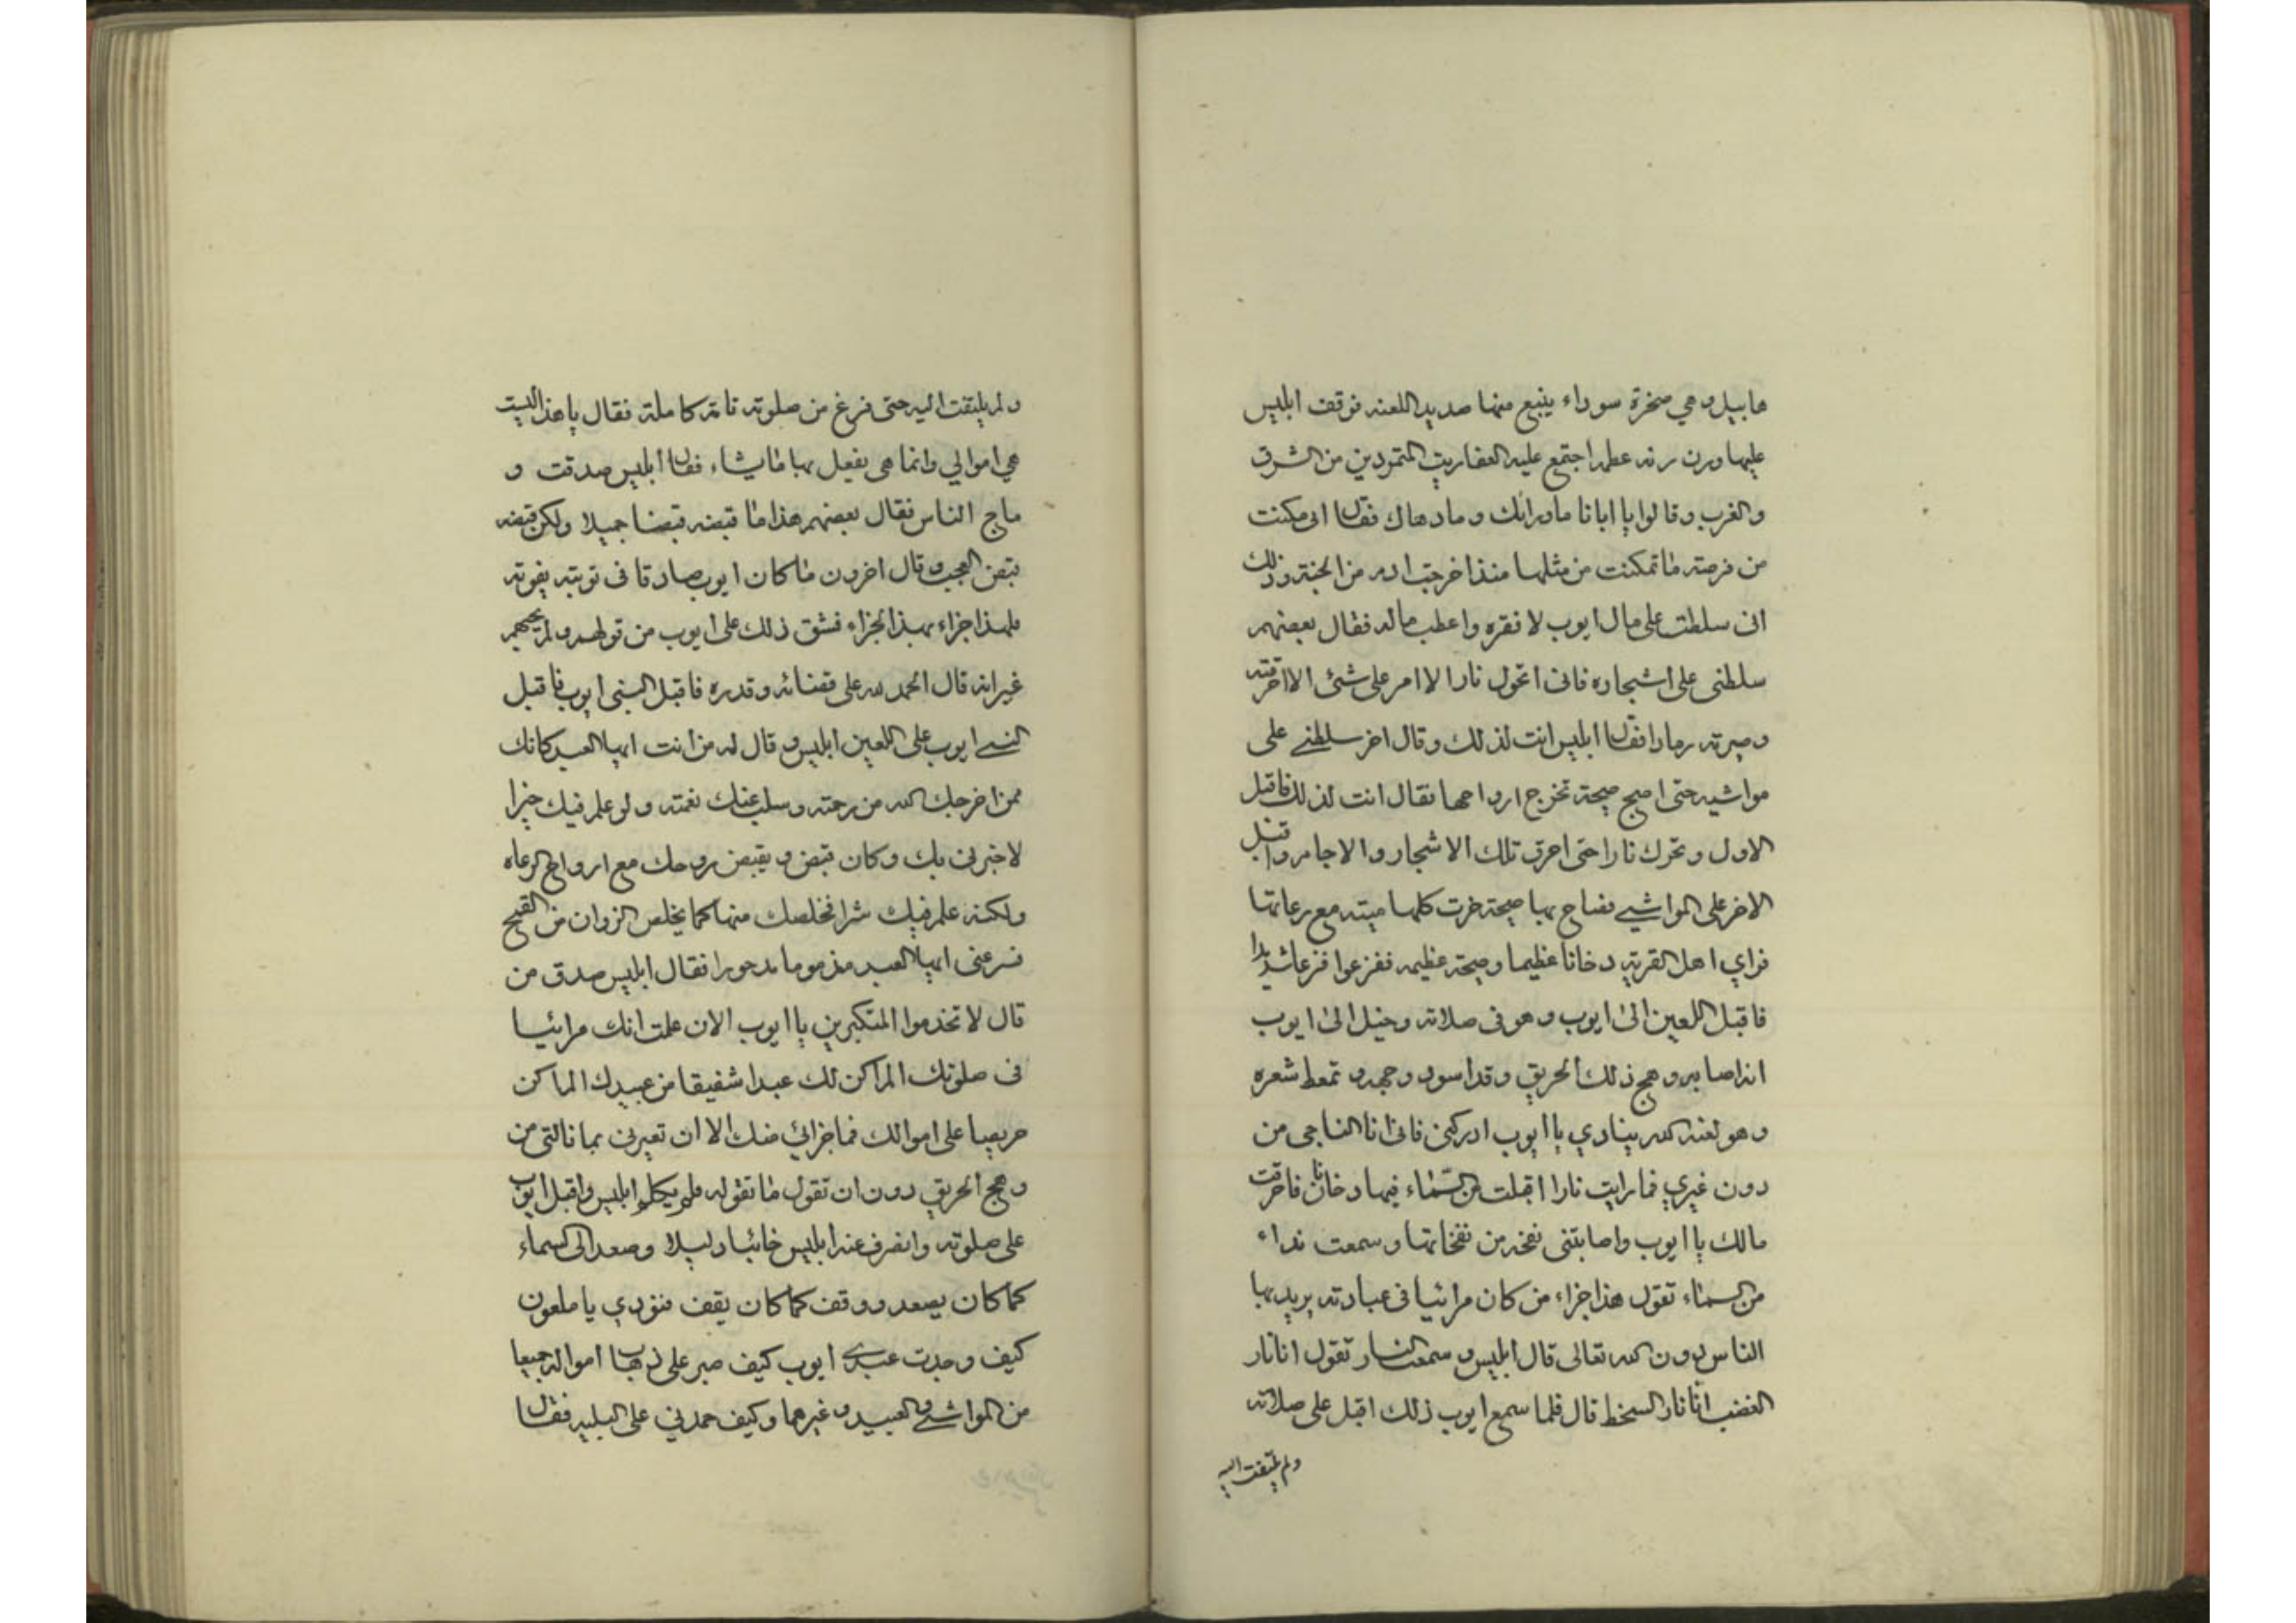 هابيل وهي صخرة سوداء ينبع منها صديد اللعنه فوقف ابليس
عليها ورن رنه عظيمه اجتمع عليه العفاريت المتمردين من الشرق
والغرب وقالوا يا ابانا ما ورائك وما دهاك فقال انى مكنت
من فرصة ما تمكنت من مثلها منذ اخرجت ادم من الجنة وذلك
انى سلطت على مال ايوب لافقره واعطب ماله فقال بعضهم
سلطنى على اشجاره فانى اتحول نارا لا امر على شئ الا احرقته
وصيرته رمادا فقال ابليس انت لذلك وقال اخر سلطنے على
مواشيه حتى اصيح صيحة تخرج ارواحها فقال انت لذلك فاقبل
الاول وتحرك نارا حتى احرق تلك الاشجار والاجام واقبل
الاخر على المواشے فصاح بها صيحة خرت كلها ميته مع رعاتها
فراي اهل القرية دخانا عظيما وصيحة عظيمه ففزعوا فزعا شديدا
فاقبل اللعين الى ايوب وهو فى صلاته وخيل الى ايوب
انه اصابه وهج ذلك الحريق وقد اسود وجهه وتمعط شعره
وهو لعنه الله ينادي يا ايوب ادركنى فانى انا الناجى من
دون غيري فما رايت نارا اقبلت من السماء فيها دخانا فاحرقت
مالك يا ايوب واصابتنى نفخه من نفخاتها وسمعت نداء
من السماء تقول هذا جزاء من كان مرائيا فى عبادته يريد بها
الناس دون الله تعالى قال ابليس وسمعت النار تقول انا نار
الغضب انا نار السخط قال فلما سمع ايوب ذلك اقبل على صلاته
ولم يلتفت اليه
ولم يلتفت اليه حتى فرغ من صلوته تامة كاملة فقال يا هذا ليست
هي اموالي وانما هى يفعل بها ما يشاء فقال ابليس صدقت و
ماج الناس فقال بعضهم هذا ما قبضه قبضا جميلا ولكن قبضه
قبض العجب وقال اخرون ما كان ايوب صادقا فى توبته
فلهذا جزاء بهذا الجزاء فشق ذلك على ايوب من قولهم ولم يجبهم
غير انه قال الحمد لله على قضائه وقدره فاقبل النبى ايوب فاقبل
النبے ايوب على اللعين ابليس وقال له من انت ايها العبد كانك
ممن اخرجك الله من رحمته وسلب عنك نعمته ولو علم فيك خيرا
لاخبرنى بك وكان قبض ويقبض روحك مع ارواح الرعاه
ولكنه علم فيك شرا فخلصك منها كما يخلص الزوان من القمح
فسر عنى ايها العبد مذموما مدحورا فقال ابليس صدق من
قال لا تخدموا المتكبرين يا ايوب الان علمت انك مرائيا
فى صلوتك الم اكن لك عبدا شفيقا من عبيدك الم اكن
حريصا على اموالك فما جزائي منك الا ان تعيرنى بما نالتى من
وهج الحريق دون ان تقول ما تقوله فلم يكلم ابليس واقبل ايوب
على صلوته وانصرف عنه ابليس خائبا دليلا وصعد الى السماء
كما كان يصعد ووقف كما كان يقف فنودي يا ملعون
كيف وجدت عبدے ايوب كيف صبر على ذهاب امواله جميعا
من المواشے والعبيد وغيرهما وكيف حمدني على البليه فقال